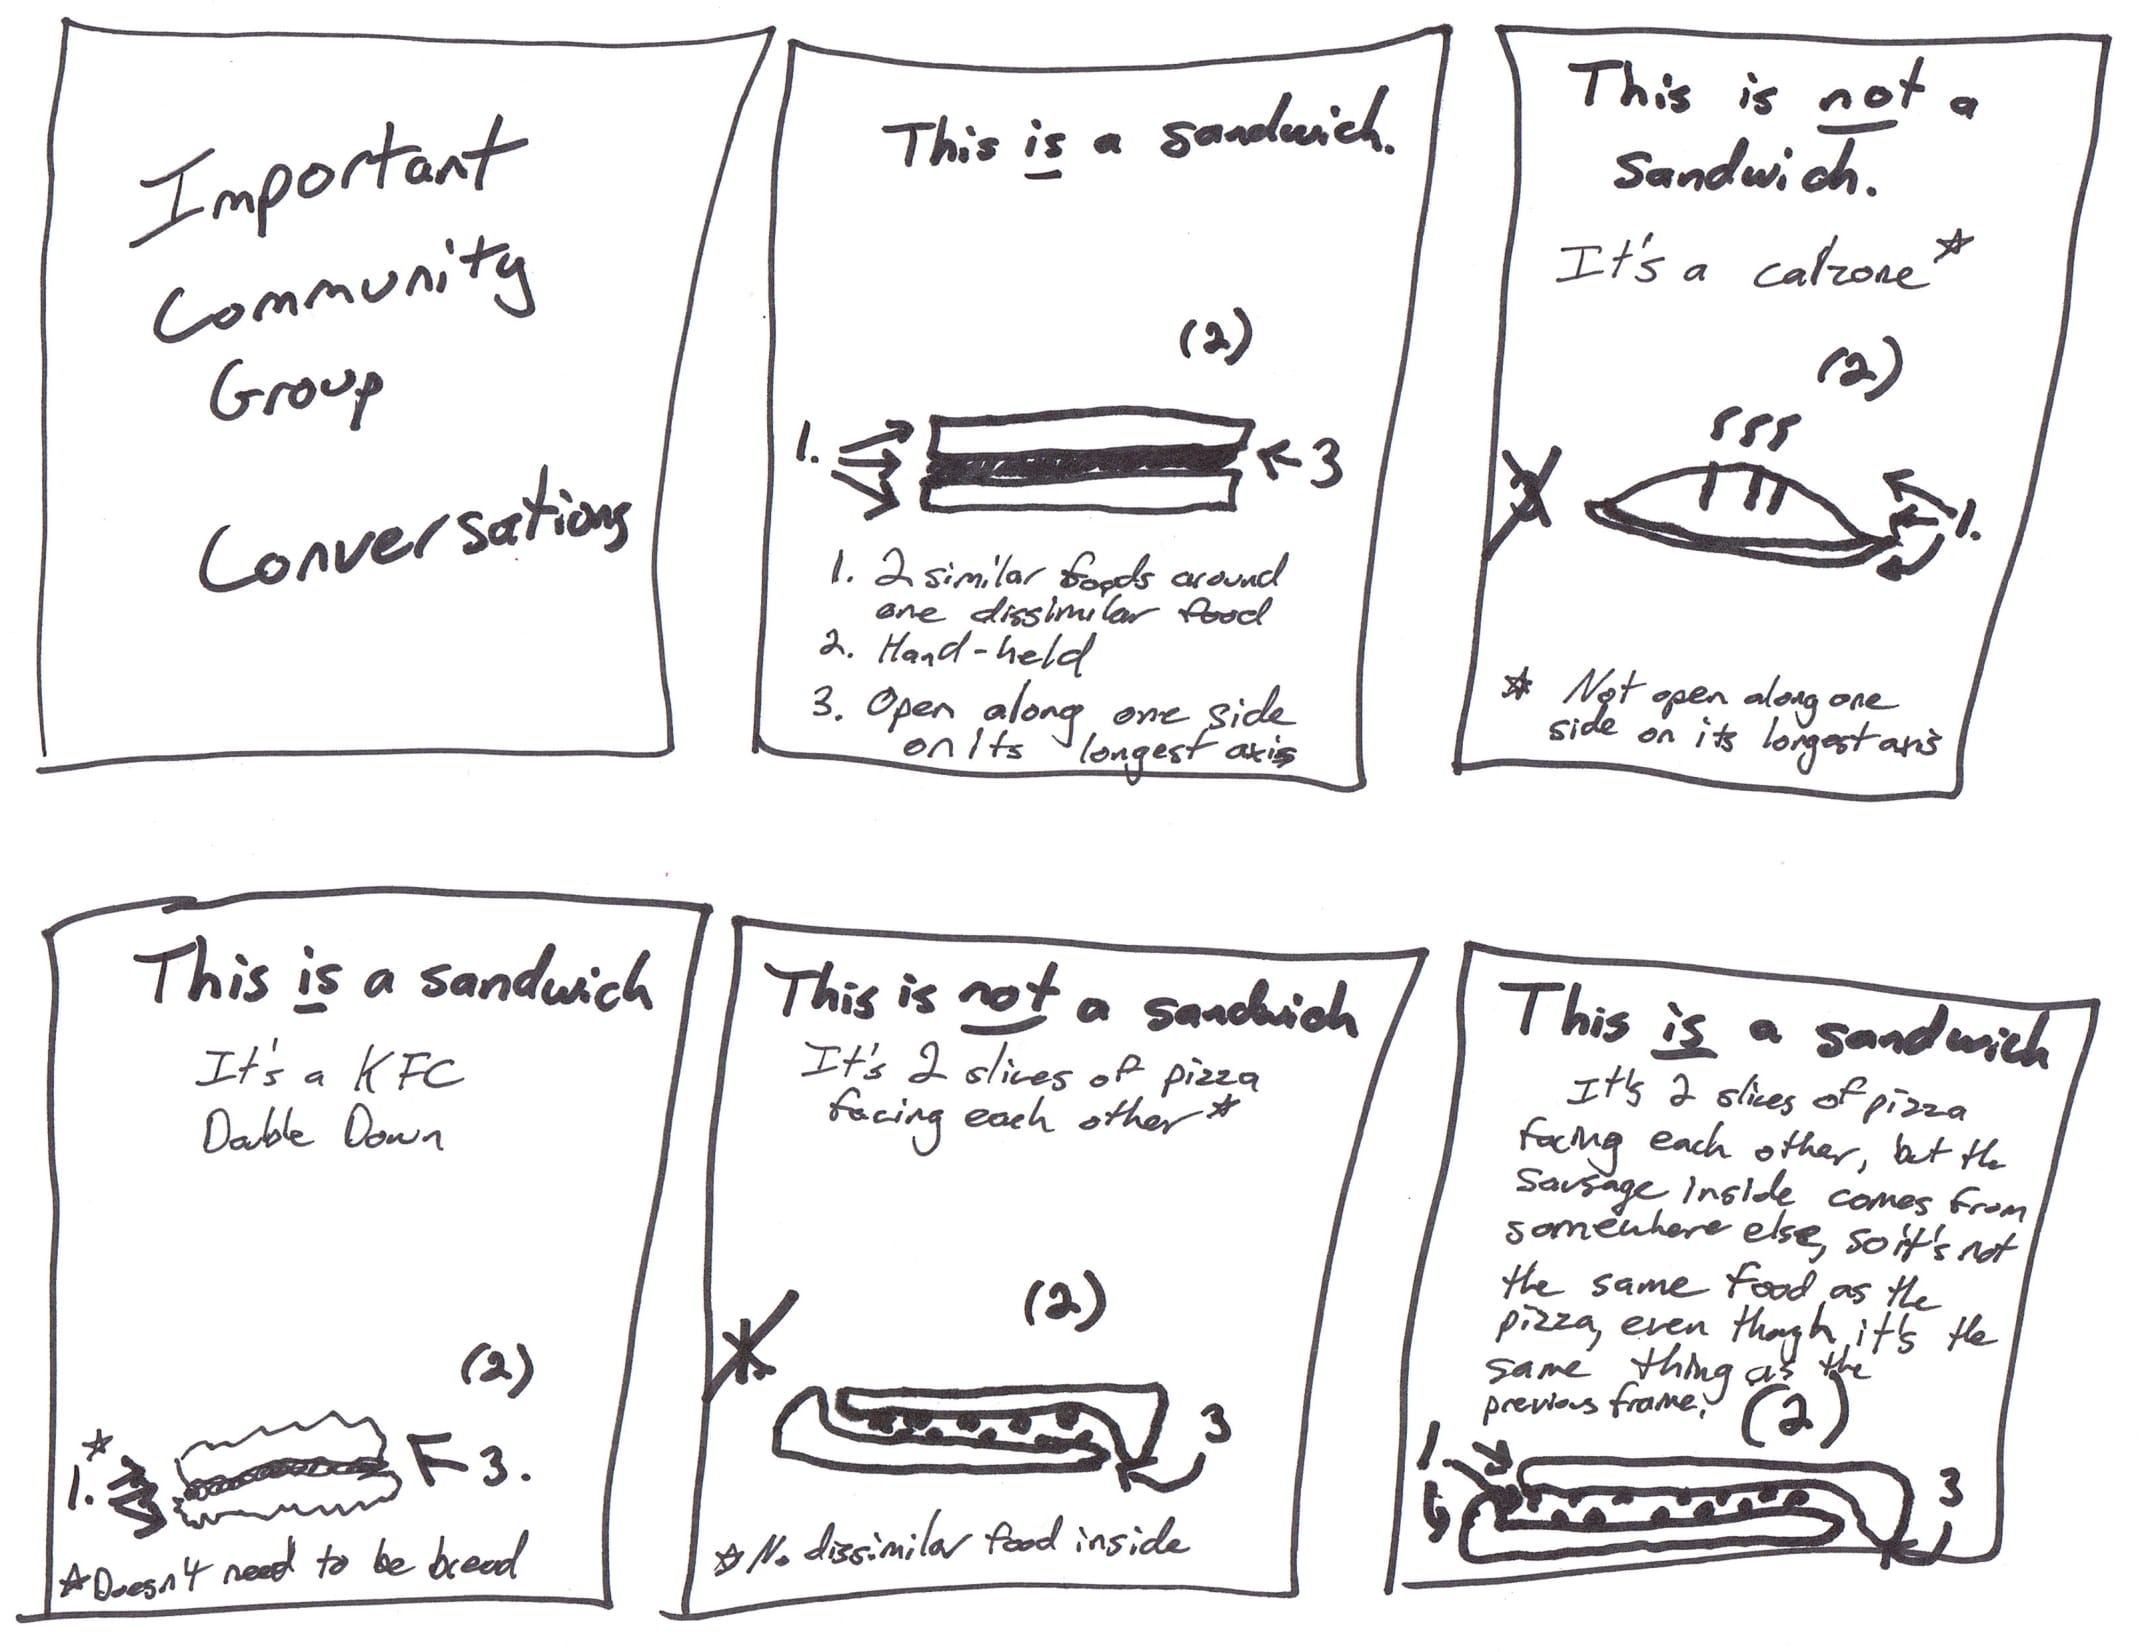 Important
Community
Group
Conversations
This is a sandwich.
(2)
1.
3
1. 2 similar foods around
one dissimilar food
2. Hand-held
3. Open along one side
on its longest axis
This is not a
sandwich.
It's a calzone*
(2)
3
1.
* Not open along one
side on its longest axis
This is a sandwich
It's a KFC
Double Down
(2)
1.*
3.
*Doesn't need to be bread
This is not a sandwich
It's 2 slices of pizza
facing each other*
(2)
1.
3
* No dissimilar food inside
This is a sandwich
It's 2 slices of pizza
facing each other, but the
sausage inside comes from
somewhere else, so it's not
the same food as the
pizza, even though it's the
same thing as the
previous frame.
(2)
1.
3